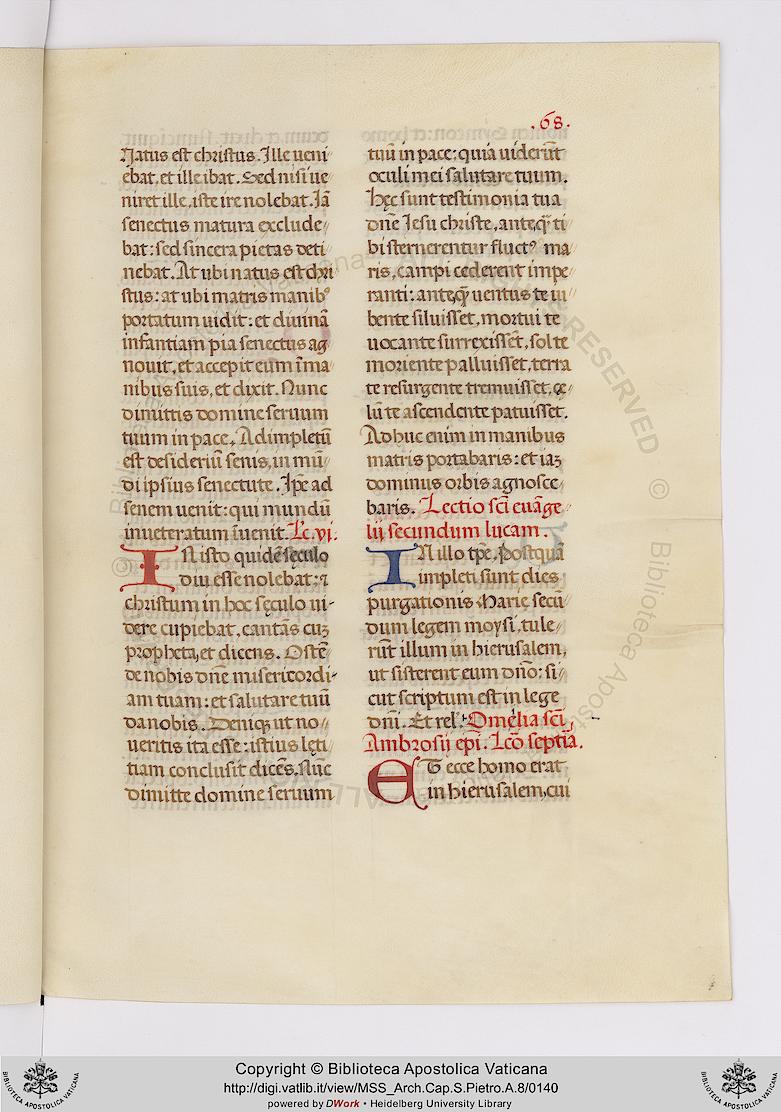 .68.
Natus est christus. Ille ueni
ebat, et ille ibat. Sed nisi ue
niret ille, iste ire nolebat. Iā
senectus matura exclude
bat: sed sincera pietas deti
nebat. At ubi natus est chri
stus: at ubi matris manibꝰ
portatum uidit: et diuinā
infantiam pia senectus ag
nouit, et accepit eum ī ma
nibus suis, et dixit. Nunc
dimittis domine seruum
tuum in pace. Adimpletū
est desideriū senis, in mū
di ipsius senectute. Ip̄e ad
senem uenit: qui mundū
inueteratum īuenit. Lc̄. vi.
IN isto quidē sęculo
diu esse nolebat: ⁊
christum in hoc sęculo ui-
dere cupiebat, cantās cuꝫ
propheta, et dicens. Ostē
de nobis dn̄e misericordi-
am tuam: et salutare tuū
da nobis. Deniqꝫ ut no
ueritis ita esse: istius lęti
tiam conclusit dicēs. Nūc
dimitte domine seruum
tuū in pace: quia uiderūt
oculi mei salutare tuum.
Hęc sunt testimonia tua
dn̄e Iesu christe, anteq̄ ti
bi sternerentur fluctꝰ ma
ris, campi cederent impe
ranti: anteq̄ uentus te iu
bente siluisset, mortui te
uocante surrexissēt, sol te
moriente palluisset, terra
te resurgente tremuisset, cę
lū te ascendente patuisset.
Adhuc enim in manibus
matris portabaris: et iaꝫ
dominus orbis agnosce
baris. Lectio sc̄i euāge
lij secundum lucam.
IN illo tp̄e, Postquā
impleti sunt dies
purgationis Marie secū
dum legem moysi, tule
rūt illum in hierusalem,
ut sisterent eum dn̄o: si
cut scriptum est in lege
dn̄i. Et rel. Omelia sc̄i
Ambrosij ep̄i. Lc̄o septīa.
ET ecce homo erat
in hierusalem, cui
Copyright © Biblioteca Apostolica Vaticana
http://digi.vatlib.it/view/MSS_Arch.Cap.S.Pietro.A.8/0140
powered by DWork • Heidelberg University Library
BIBLIOTECA APOSTOLICA VATICANA
BIBLIOTECA APOSTOLICA VATICANA